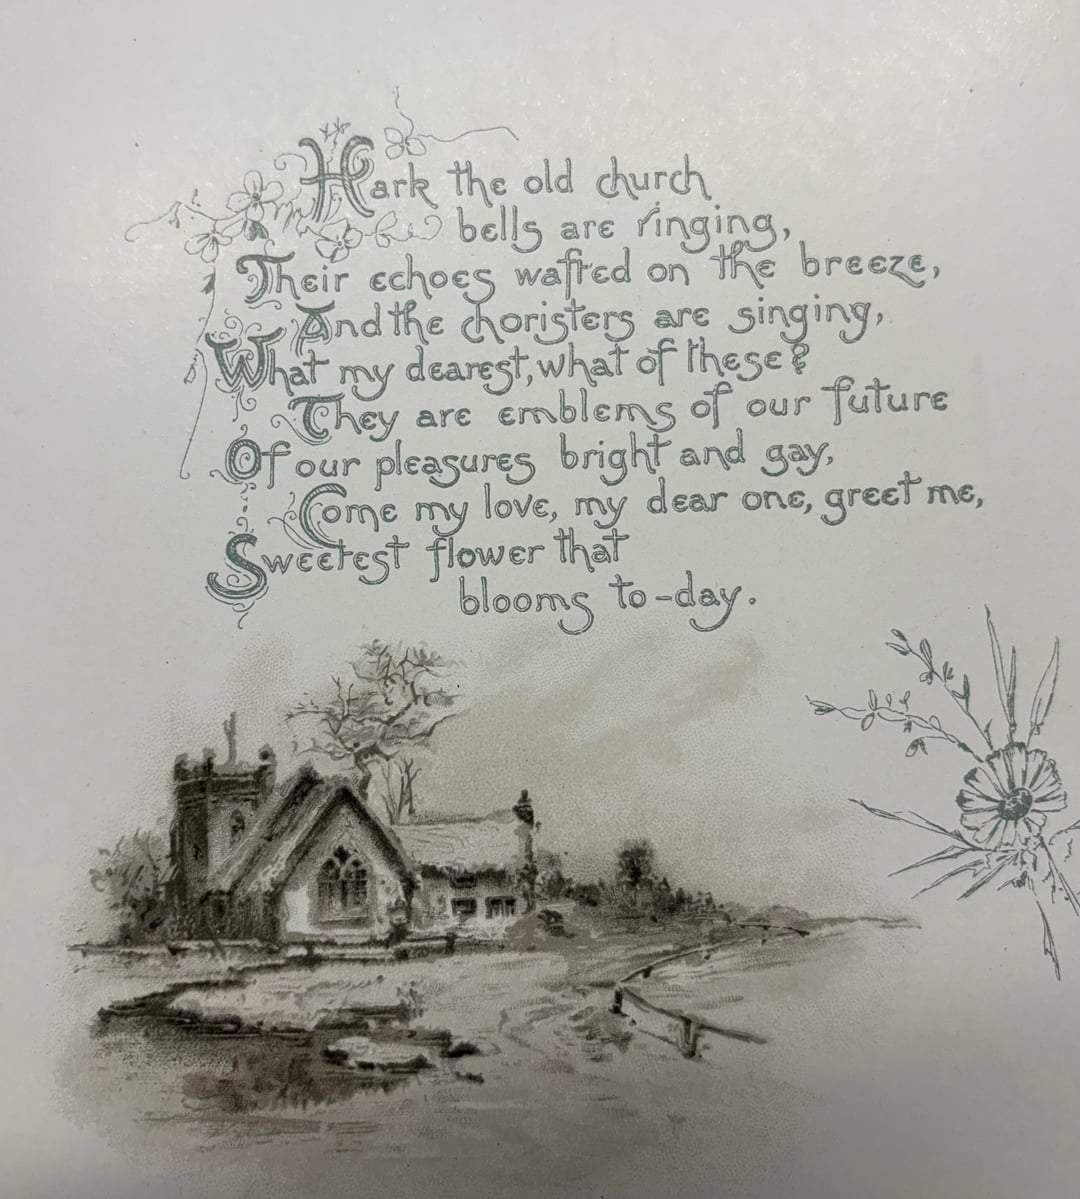 Hark the old church
bells are ringing,
Their echoes wafted on the breeze,
And the choristers are singing,
What my dearest, what of these?
They are emblems of our future
Of our pleasures bright and gay,
Come my love, my dear one, greet me,
Sweetest flower that
blooms to-day.